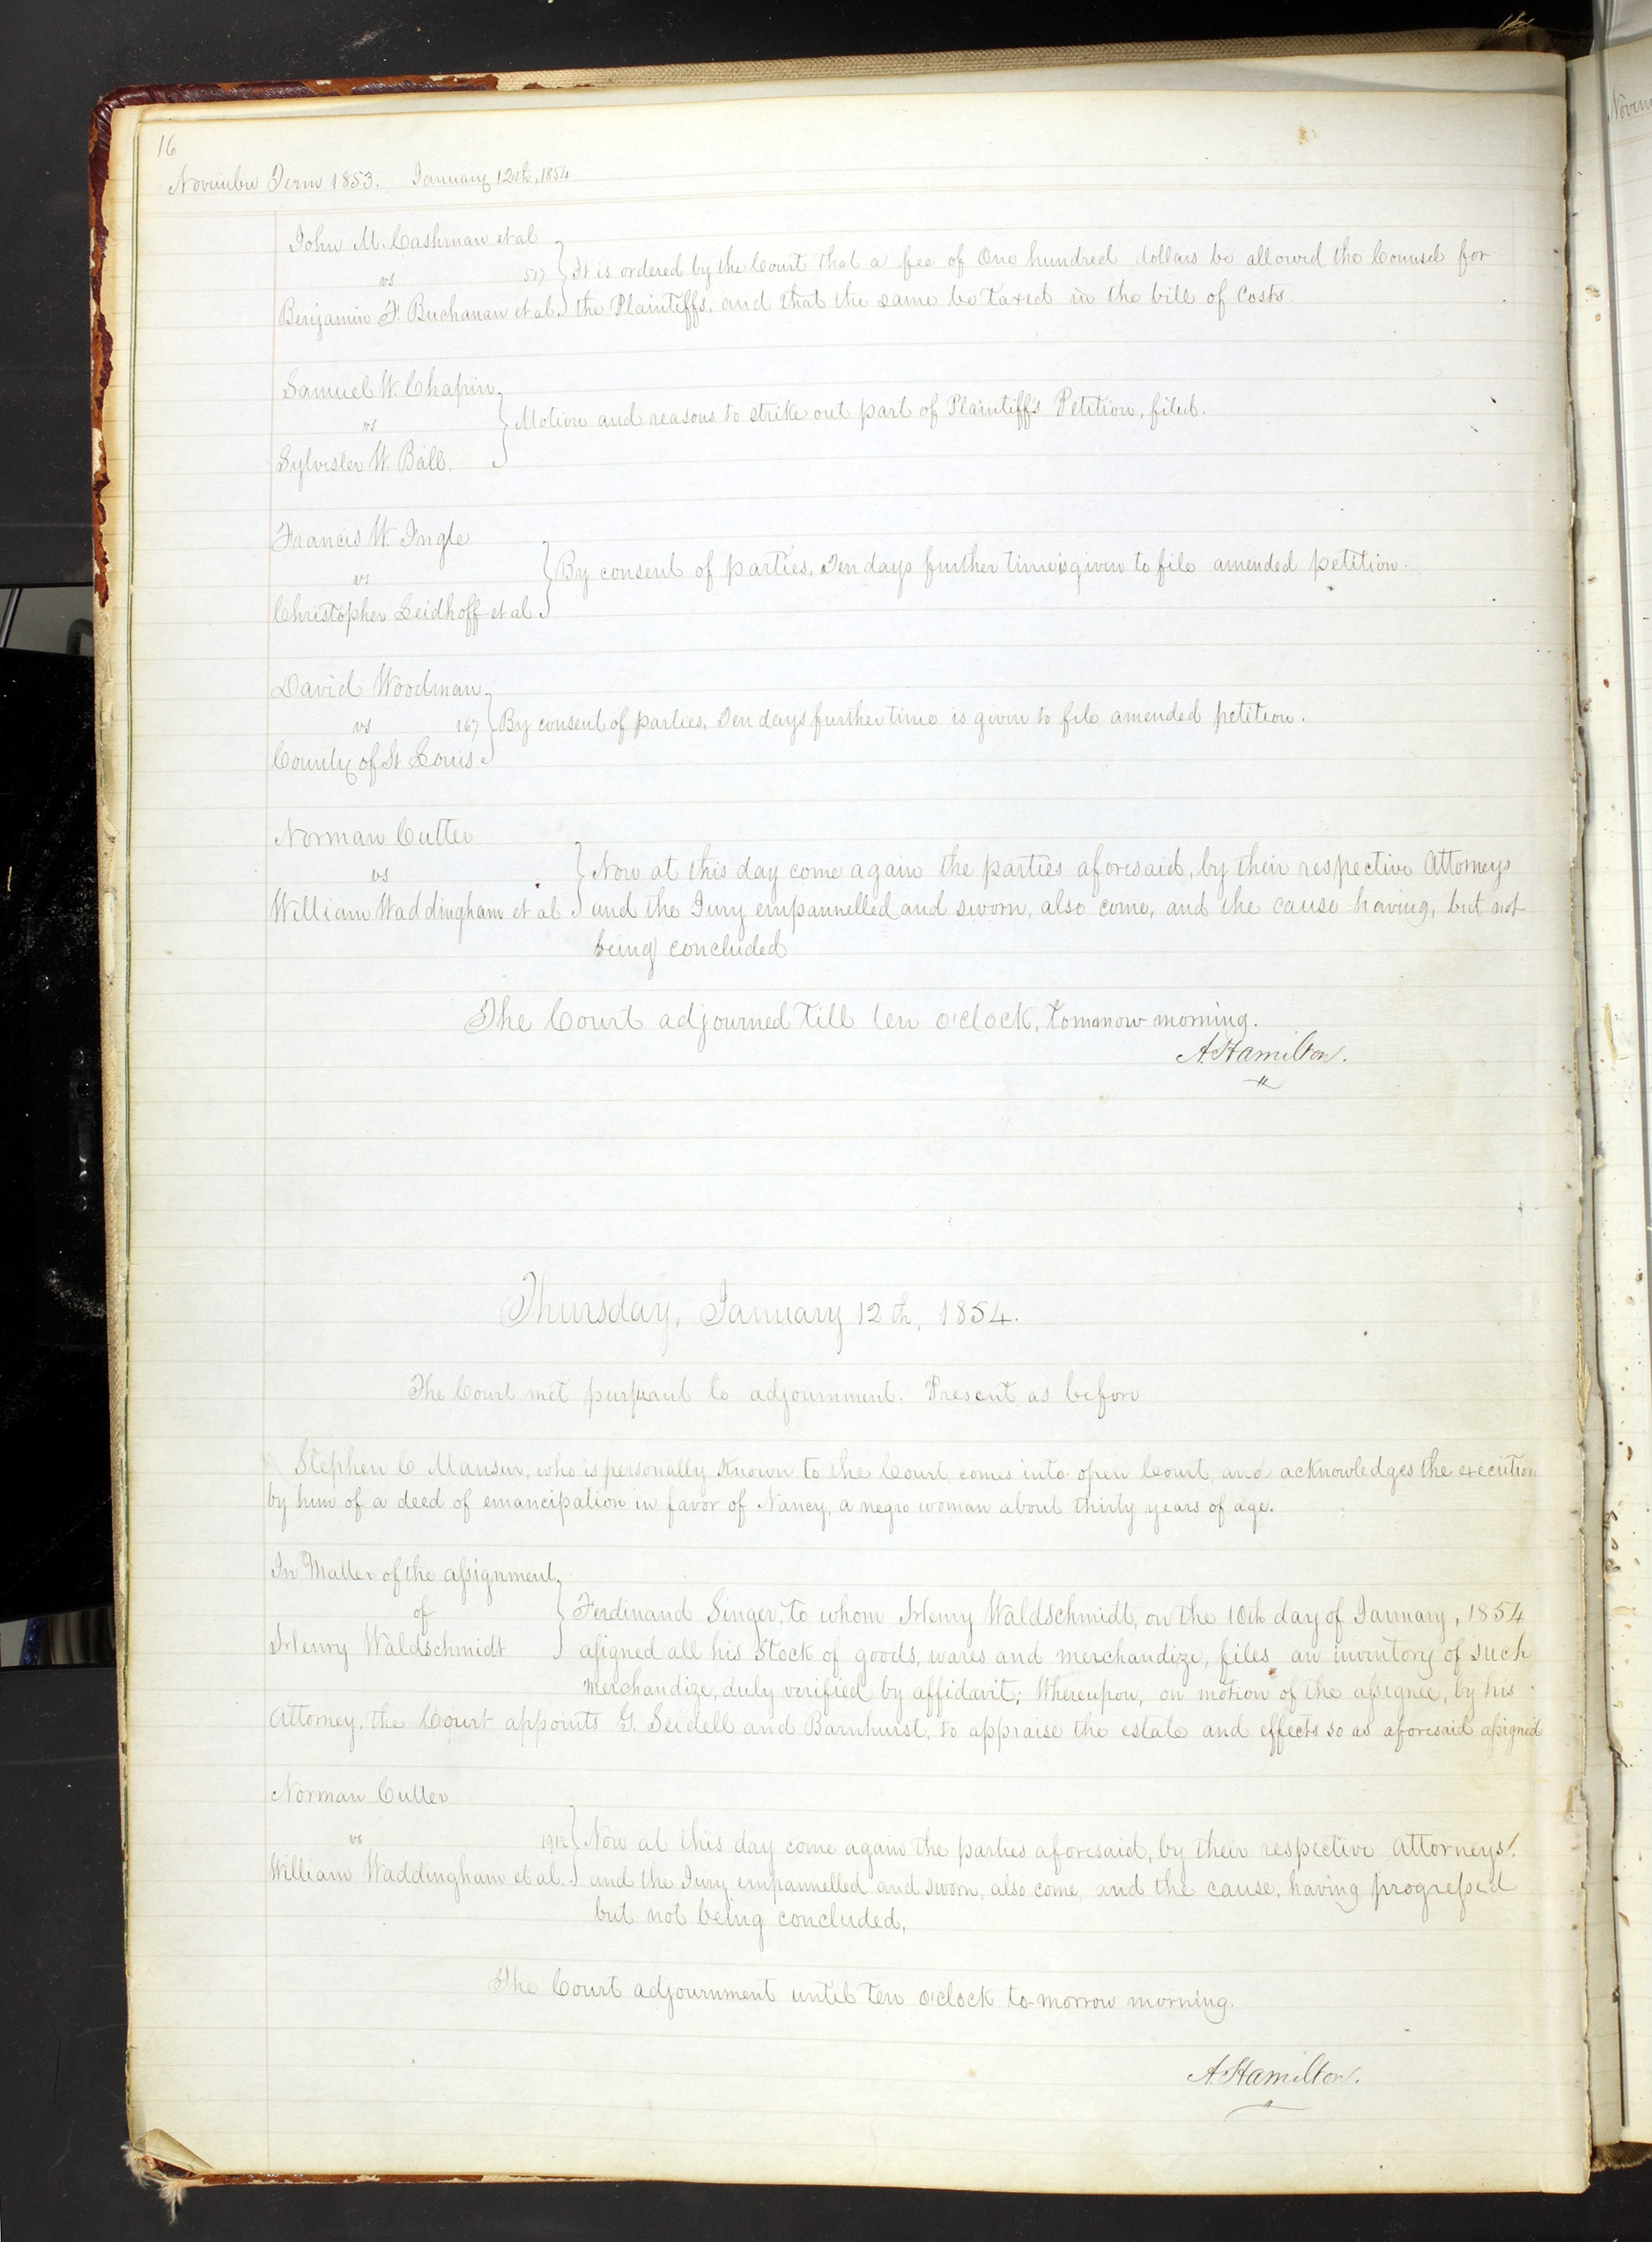 16
November Term 1853. January 12th, 1854
John M. Cashman et al
vs 517 It is ordered by the Court that a fee of One hundred dollars be allowed the Counsel for
Benjamin F. Buchanan et al. the Plaintiffs, and that the same be taxed in the bill of Costs.
Samuel W. Chapin
vs Motion and reasons to strike out part of Plaintiff's Petition, filed.
Sylvester W. Ball.
Francis W. Ingle
vs By consent of parties, Ten days further time is given to file amended petition.
Christopher Leidhoff et al.
David Woodman
vs 167 By consent of parties, Ten days further time is given to file amended petition.
County of St Louis
Norman Cutter
vs Now at this day come again the parties aforesaid, by their respective Attorneys
William Waddingham et al and the Jury empannelled and sworn, also come, and the cause having, but not
being concluded
The Court adjourned till ten o'clock, tomorrow morning.
A. Hamilton.
Thursday, January 12th, 1854.
The Court met pursuant to adjournment. Present as before
Stephen C Mansur, who is personally known to the Court, comes into open Court, and acknowledges the execution
by him of a deed of emancipation in favor of Nancy, a negro woman about thirty years of age.
In Matter of the assignment
of Ferdinand Singer, to whom Henry Waldschmidt, on the 10th day of January, 1854
Henry Waldschmidt assigned all his Stock of goods, wares and merchandize, files an inventory of such
merchandize, duly verified by affidavit; Whereupon, on motion of the assignee, by his
Attorney, the Court appoints G. Seidell and Barnhurst, to appraise the estate and effects so as aforesaid assigned
Norman Cutter
vs Now at this day come again the parties aforesaid, by their respective Attorneys.
William Waddingham et al. and the Jury empannelled and sworn, also come, and the cause, having progressed
but not being concluded,
The Court adjournment until ten o'clock to-morrow morning.
A. Hamilton.